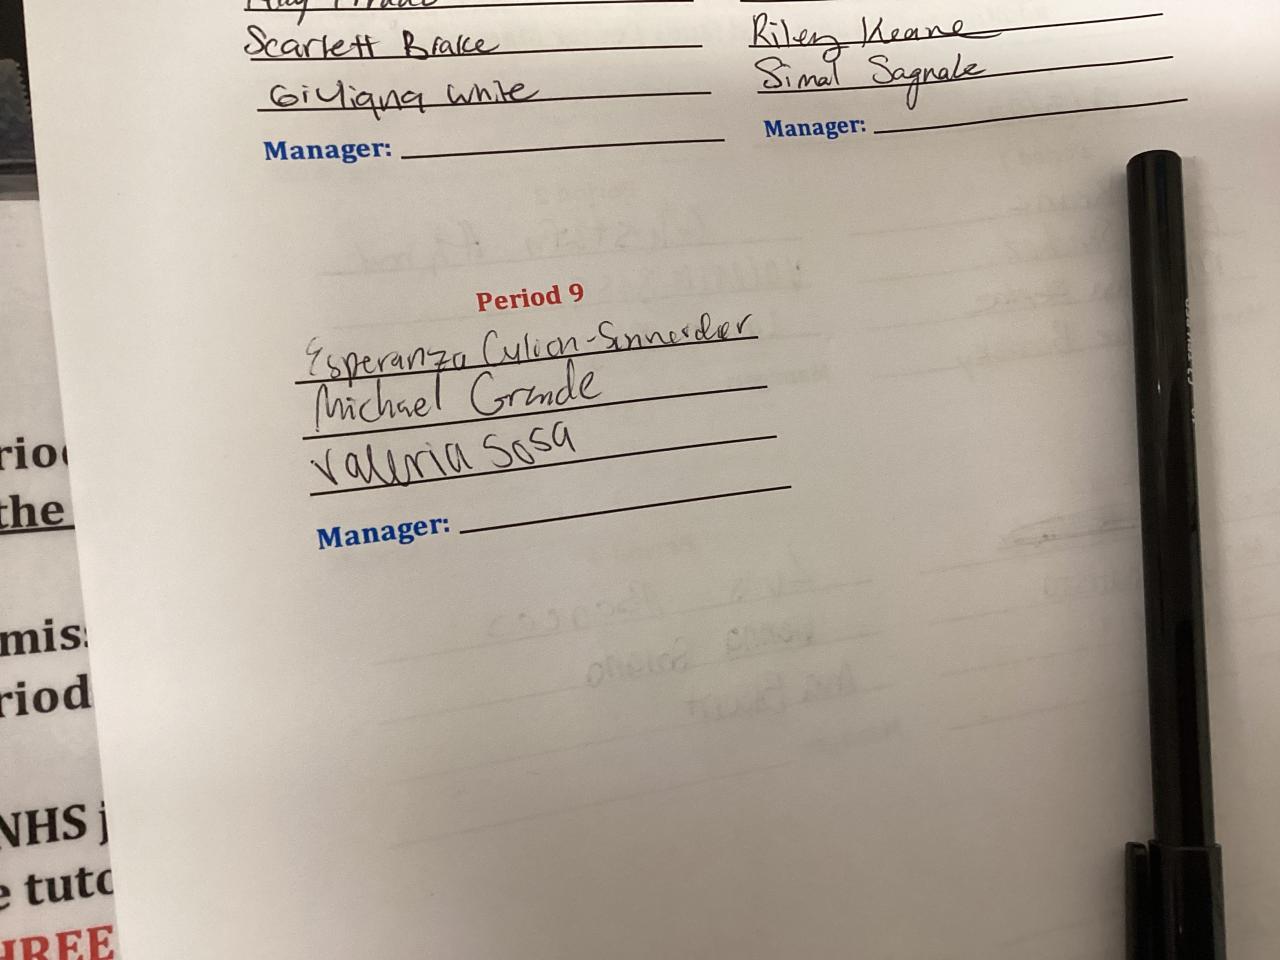 Scarlett Brake
Giuliana White
Manager:
Riley Keane
Simal Sagnak
Manager:
Period 9
Esperanza
Michael Grande
Valeria Sosa
Manager:
the
riod
NHS j
e tuto